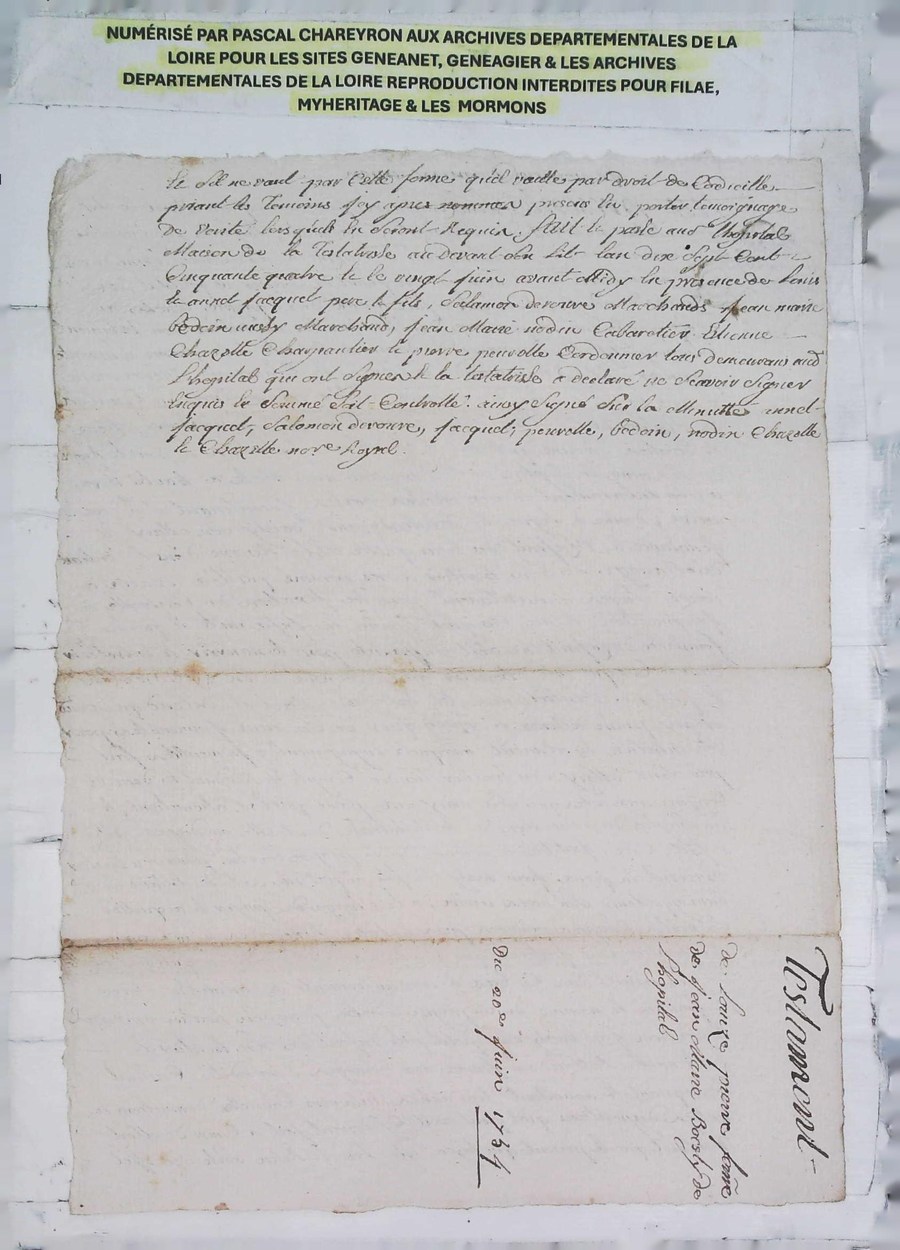 NUMÉRISÉ PAR PASCAL CHAREYRON AUX ARCHIVES DEPARTEMENTALES DE LA
LOIRE POUR LES SITES GENEANET, GENEAGIER & LES ARCHIVES
DEPARTEMENTALES DE LA LOIRE REPRODUCTION INTERDITES POUR FILAE,
MYHERITAGE & LES MORMONS
Et sil ne vaut par Cette forme quil vaille par droit de Codicille
priant les Temoins icy apres nommes presens en porter temoignage
de verité lorsquils en Seront Requis. fait et passé aud Lhopital
Maison de la Testatrise au devant son Lit lan dix Sept Cent
Cinquante quatre et le vingt juin avant Midy en presence de Louis
et annet jacquet pere et fils, Salamon devouvre Marchands jean marie
bedoin aussy Marchand, jean Marie nodin Cabaretier Etienne
Chazelle Charpantier et pierre peurelle Cordonnier tous demeurans aud
Lhopital qui ont Signes et la testatrise a declaré ne Scavoir Signer
Enquis et Sommé Soit Controllé. ainsy Signé Sur la Minutte annet
jacquet, Salamon devouvre, jacquet, peurelle, bedoin, nodin Chazelle
et Chazelle nore Royal.
Testament
de Louize pierre feme
de jean Marie de
Lhopital
Du 20e juin 1754